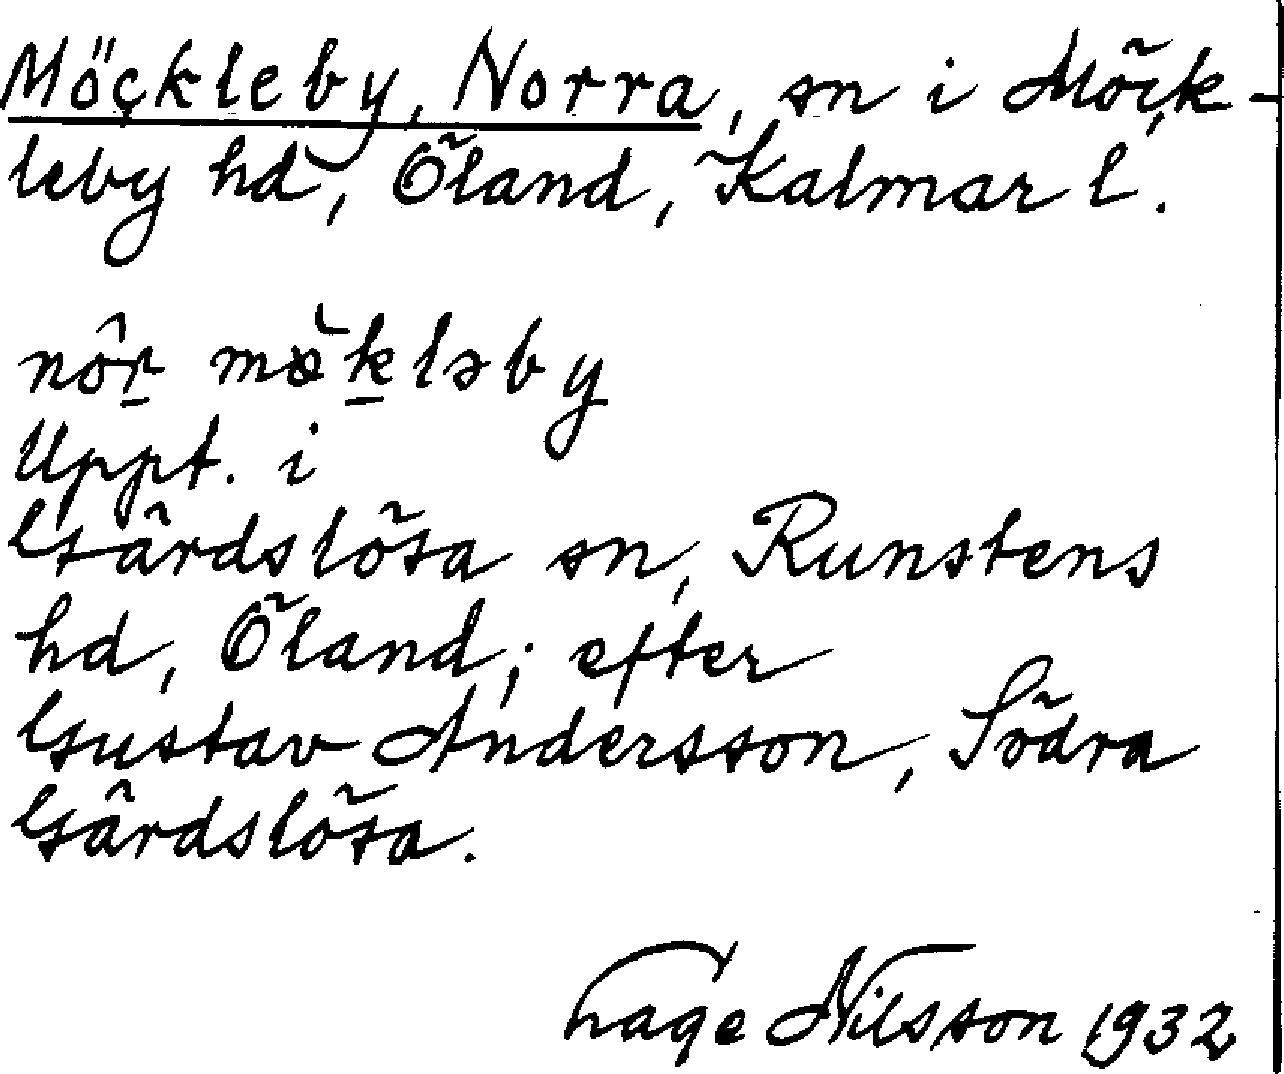 Möckleby, Norra, sn i Möck-
leby hd, Öland, Kalmar l.
nôr̲ mø̆k̲ləby
Uppt. i
Gårdslösa sn, Runstens
hd, Öland; efter
Gustav Andersson, Södra
Gårdslösa.
Tage Nilsson 1932